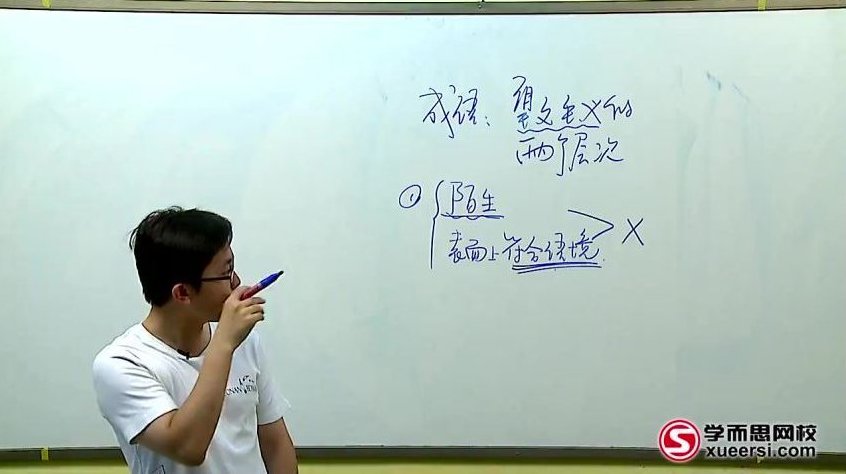 成语：望文生义的
两个层次
① 陌生
表面上符合语境. X
学而思网校
xueersi.com